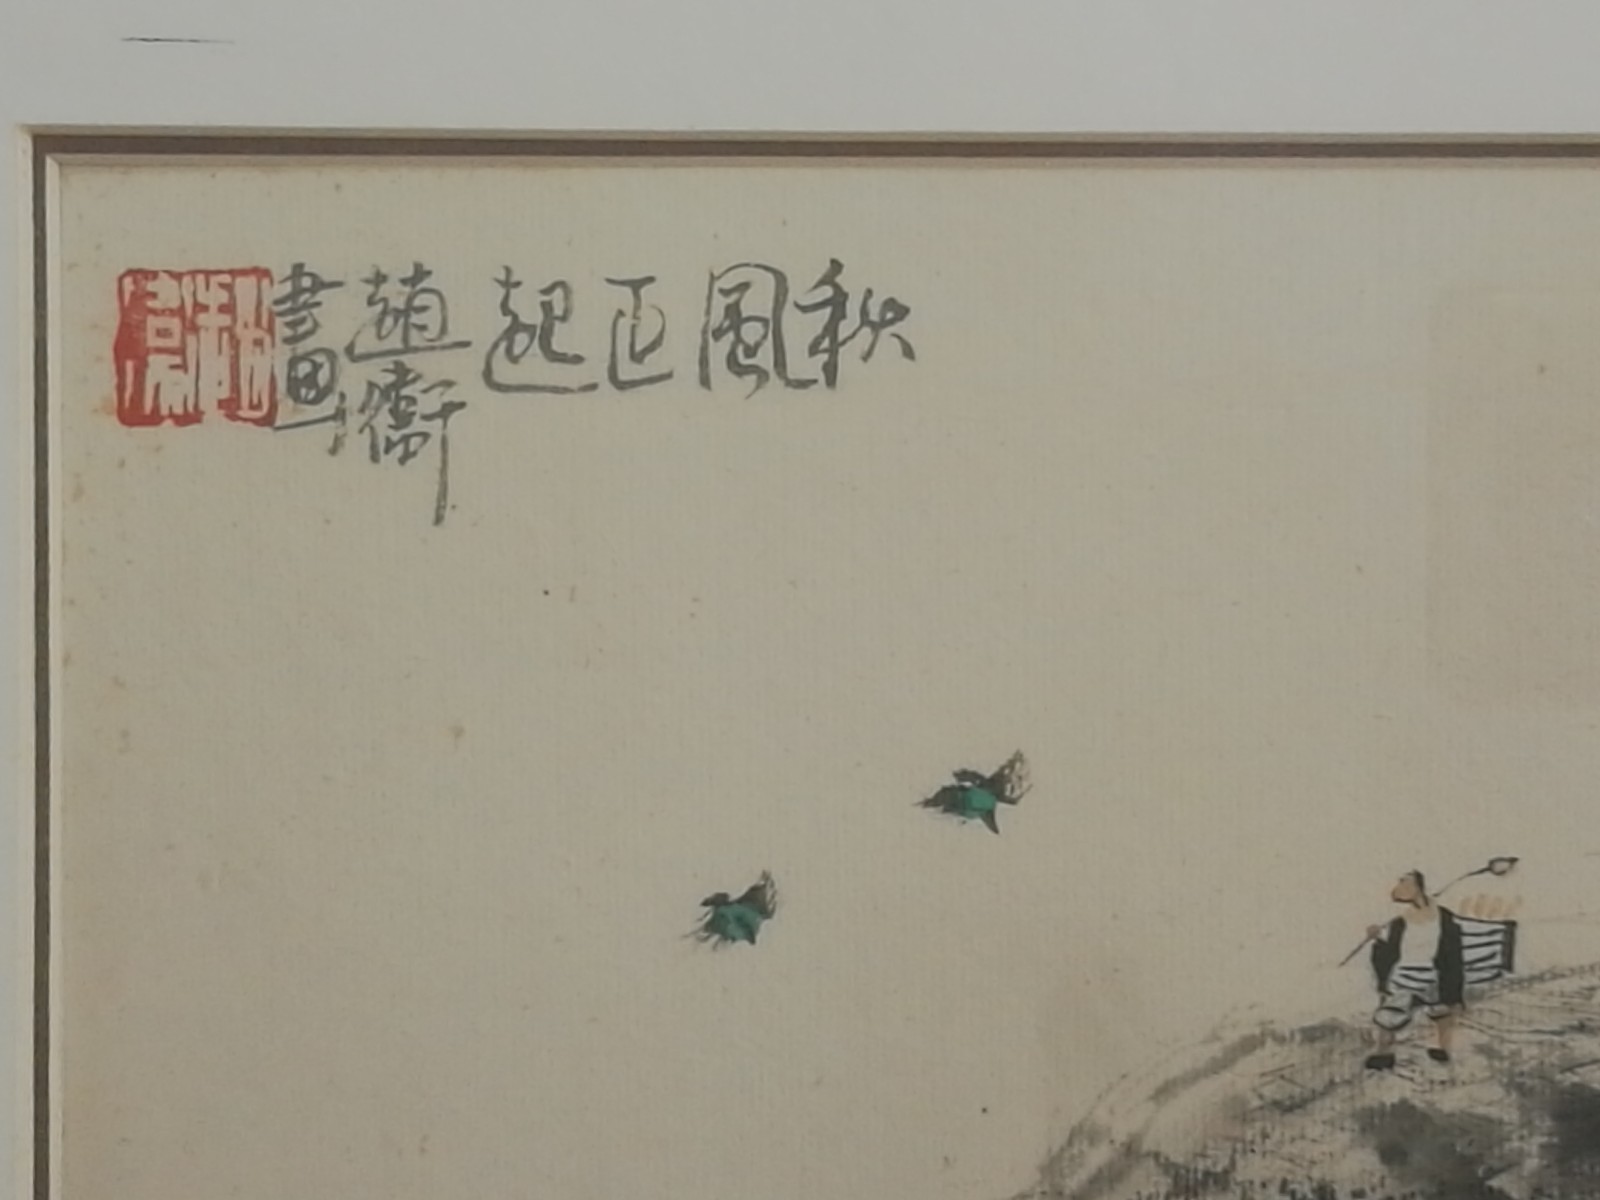 秋風正起
趙衛
畫